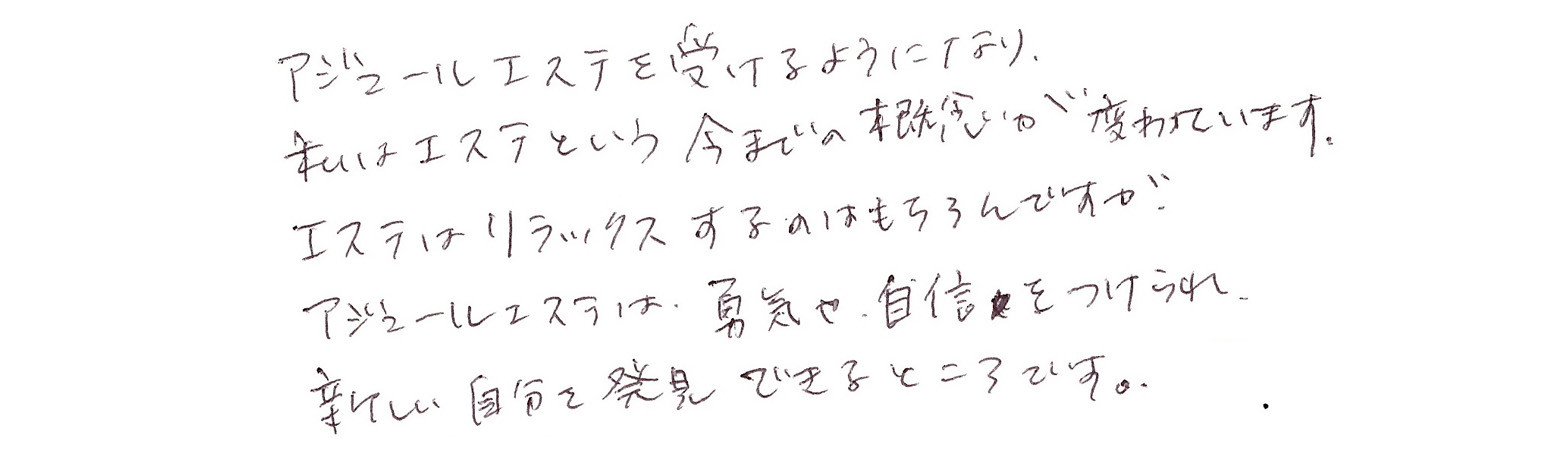 アジュールエステを受けるようになり、
私はエステという今までの概念が変わっています。
エステはリラックスするのはもちろんですが
アジュールエステは、勇気や、自信をつけられ、
新しい自分を発見できるところです。